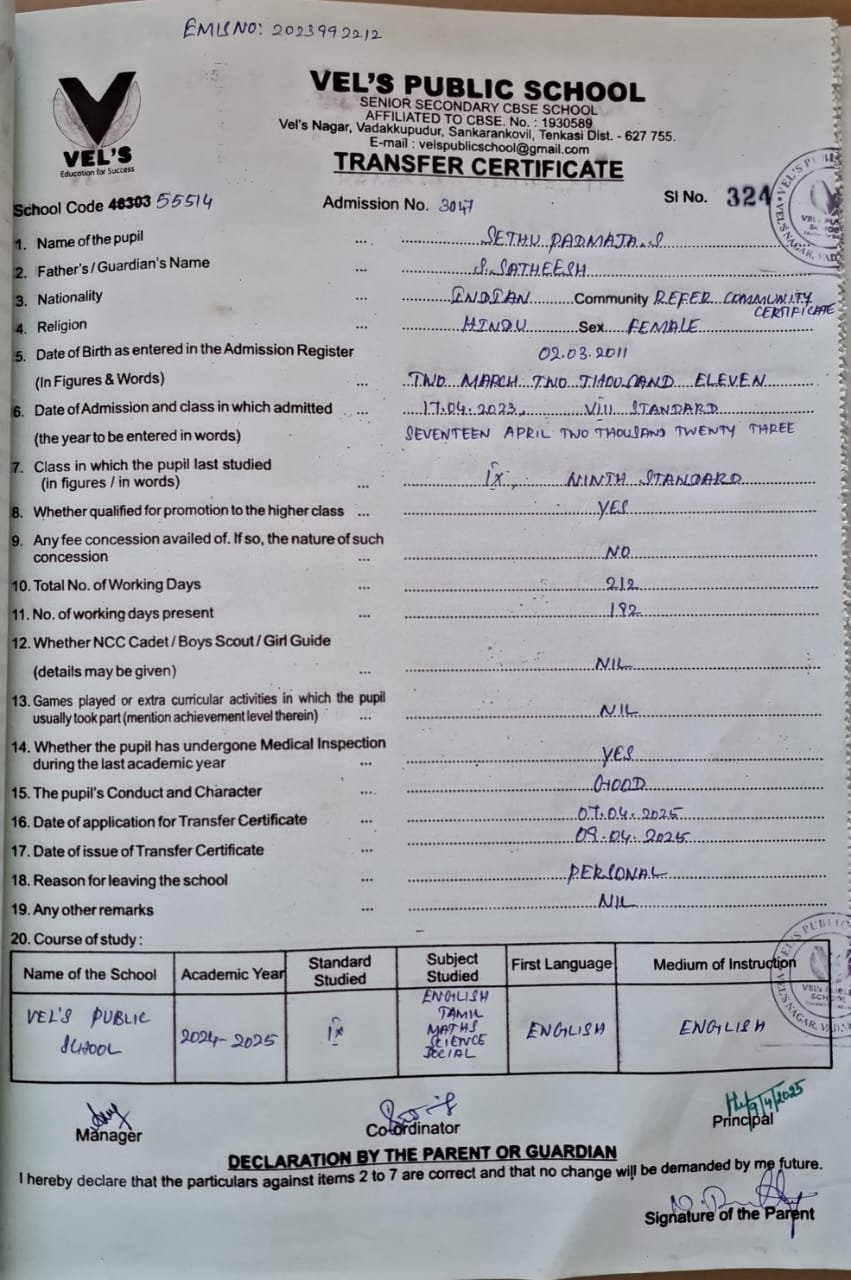 EMIS NO: 2023992212
VEL'S
Education for Success
VEL'S PUBLIC SCHOOL
SENIOR SECONDARY CBSE SCHOOL
AFFILIATED TO CBSE. No. : 1930589
Vel's Nagar, Vadakkupudur, Sankarankovil, Tenkasi Dist. - 627 755.
E-mail : velspublicschool@gmail.com
TRANSFER CERTIFICATE
School Code 46303 55514 Admission No. 3047 Sl No. 324
1. Name of the pupil ... SETHU PADMAJA.S
2. Father's / Guardian's Name ... S.SATHEESH
3. Nationality ... INDIAN Community REFER COMMUNITY CERTIFICATE
4. Religion ... HINDU Sex FEMALE
5. Date of Birth as entered in the Admission Register 02.03.2011
(In Figures & Words) ... TWO MARCH TWO THOUSAND ELEVEN
6. Date of Admission and class in which admitted ... 17.04.2023, VIII STANDARD
(the year to be entered in words) SEVENTEEN APRIL TWO THOUSAND TWENTY THREE
7. Class in which the pupil last studied
(in figures / in words) ... IX, NINTH STANDARD
8. Whether qualified for promotion to the higher class ... YES
9. Any fee concession availed of. If so, the nature of such
concession ... NO
10. Total No. of Working Days ... 212
11. No. of working days present ... 192
12. Whether NCC Cadet / Boys Scout / Girl Guide
(details may be given) ... NIL
13. Games played or extra curricular activities in which the pupil
usually took part (mention achievement level therein) ... NIL
14. Whether the pupil has undergone Medical Inspection
during the last academic year ... YES
15. The pupil's Conduct and Character ... GOOD
16. Date of application for Transfer Certificate ... 07.04.2025
17. Date of issue of Transfer Certificate ... 09.04.2025
18. Reason for leaving the school ... PERSONAL
19. Any other remarks ... NIL
20. Course of study :
Name of the School Academic Year Standard Studied Subject Studied First Language Medium of Instruction
VEL'S PUBLIC SCHOOL 2024-2025 IX ENGLISH TAMIL MATHS SCIENCE SOCIAL ENGLISH ENGLISH
9/4/2025
Manager Co-ordinator Principal
DECLARATION BY THE PARENT OR GUARDIAN
I hereby declare that the particulars against items 2 to 7 are correct and that no change will be demanded by me future.
Signature of the Parent